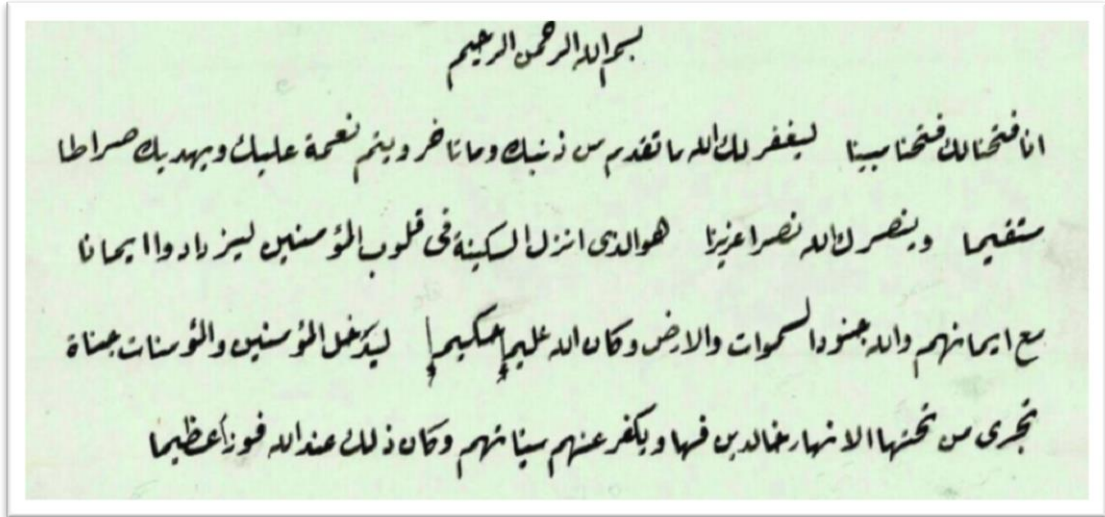 بسم الله الرحمن الرحيم
انا فتحنا لك فتحنا مبينا ليغفر لك الله ما تقدم من ذنبك وما تاخر ويتم نعمة عليك ويهديك صراطا
مستقيما وينصرك الله نصرا عزيزا هو الذى انزل السكينة فى قلوب المؤمنين ليزدادوا ايمانا
مع ايمانهم والله جنود السموات والارض وكان الله عليما حكيما ليدخل المؤمنين والمؤمنات جناة
تجرى من تحتها الانهار خالدين فيها ويكفر عنهم سيئاتهم وكان ذلك عند الله فوزا عظيما